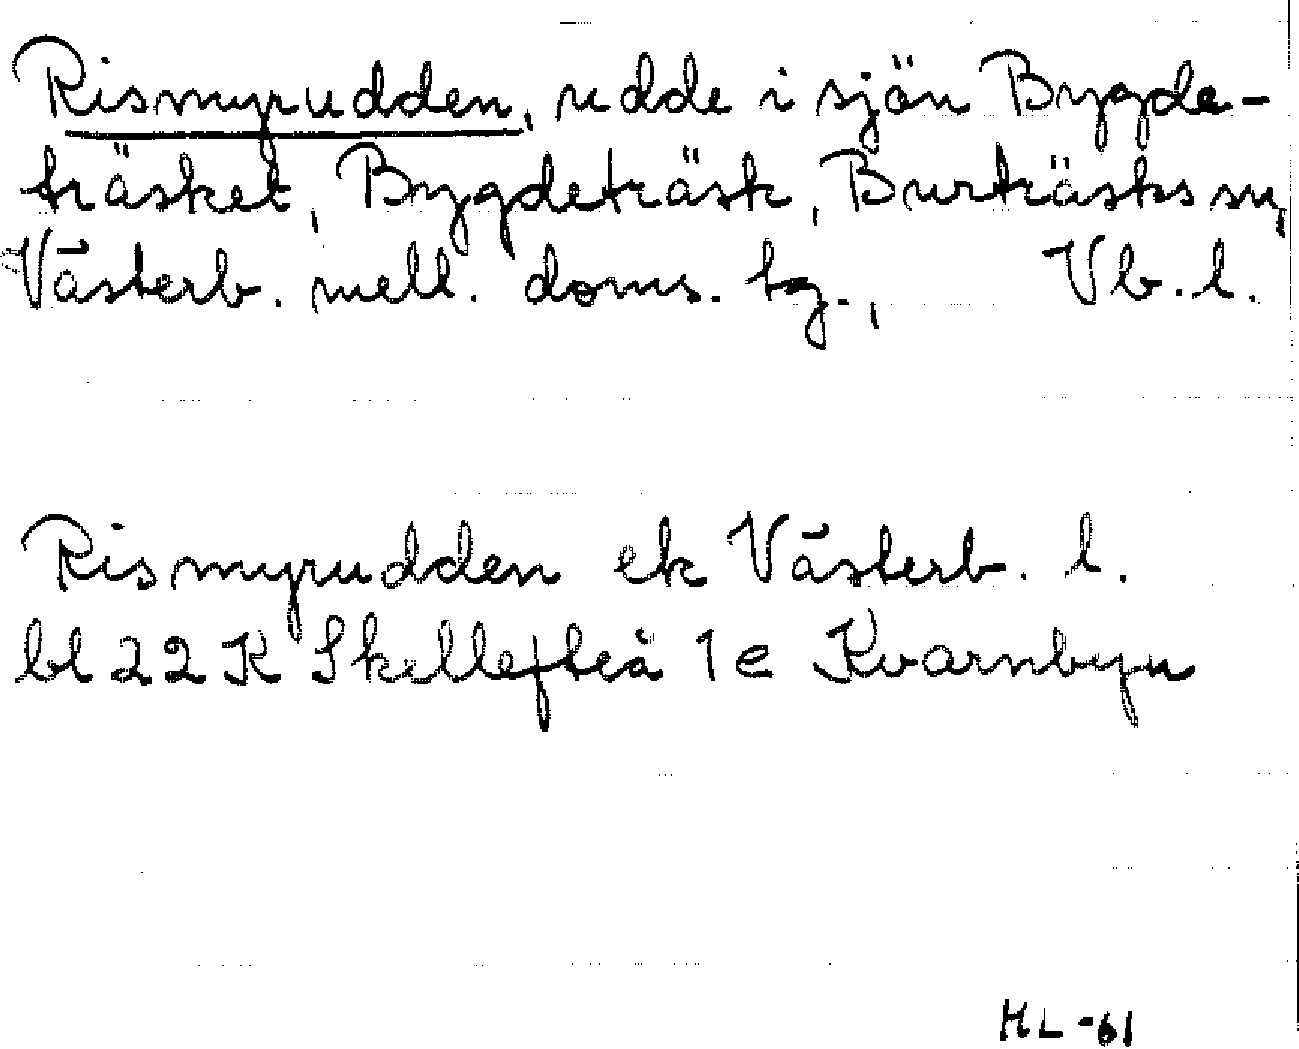 Rismyrudden, udde i sjön Bygde-
träsket, Bygdeträsk, Burträsks sn,
Västerb. mell. doms. tg., Vb. l.
Rismyrudden ek Västerb. l.
bl 22 K Skellefteå 1 e Kvarnbyn
HL -61